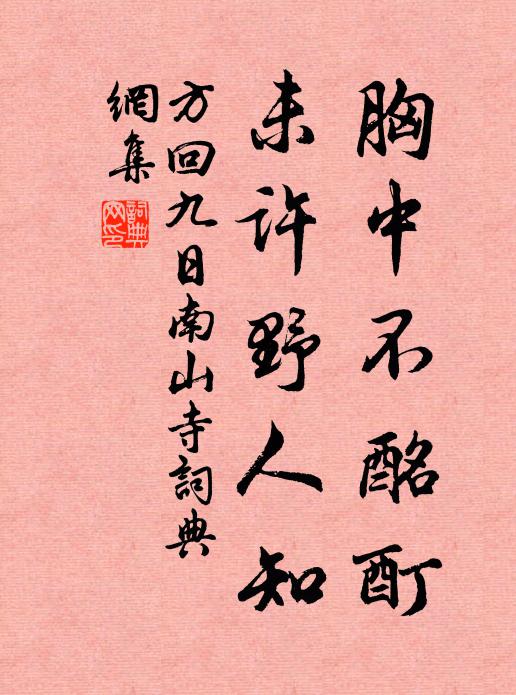 胸中不酩酊
未許野人知
方回九日南山寺詞典
網集
詞典
網印